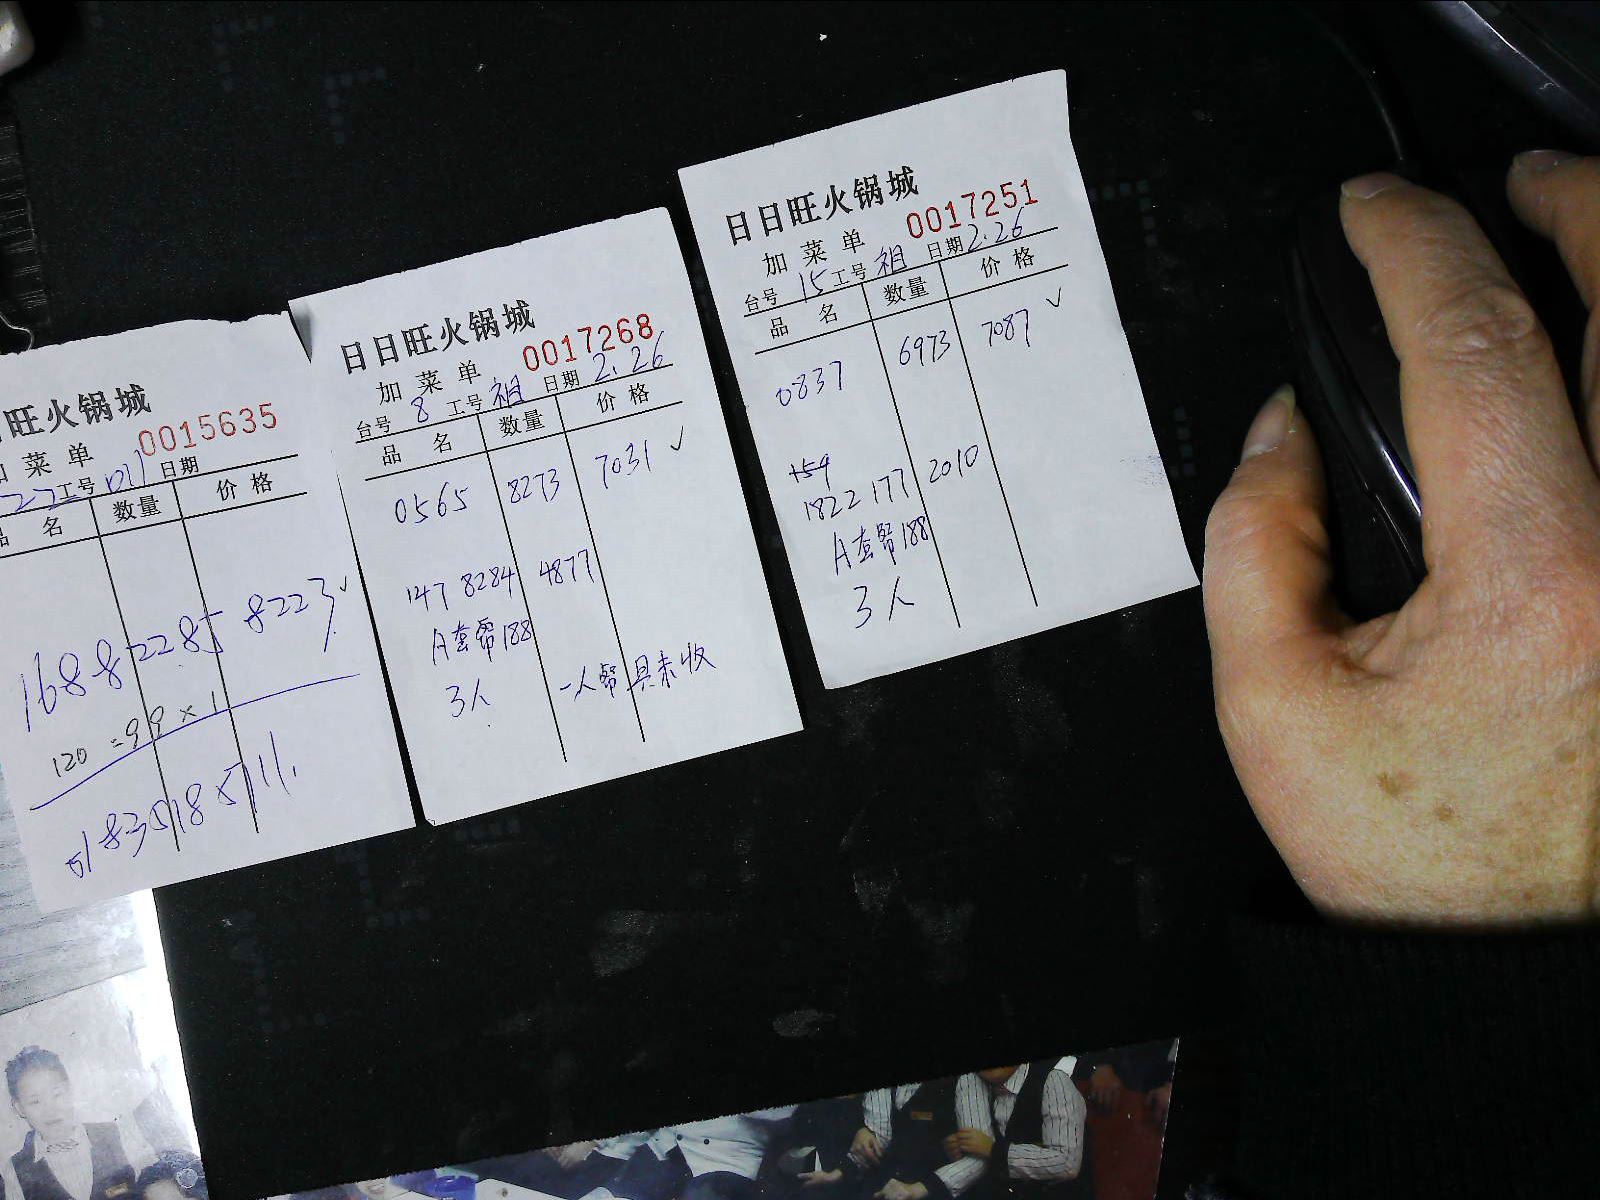 旺火锅城
加菜单 0015635
22 工号 日期
品 名 数量 价格
1688 2285 8223 ✓
120 = 99 × 1
日日旺火锅城
加菜单 0017268
台号 8 工号 祖 日期 2.26
品 名 数量 价格
0565 8273 7031 ✓
147 8284 4877
A套餐188
3人 一人餐具未收
日日旺火锅城
加菜单 0017251
台号 15 工号 祖 日期 2.26
品 名 数量 价格
0837 6973 7087 ✓
1822 177 2010
A套餐188
3人